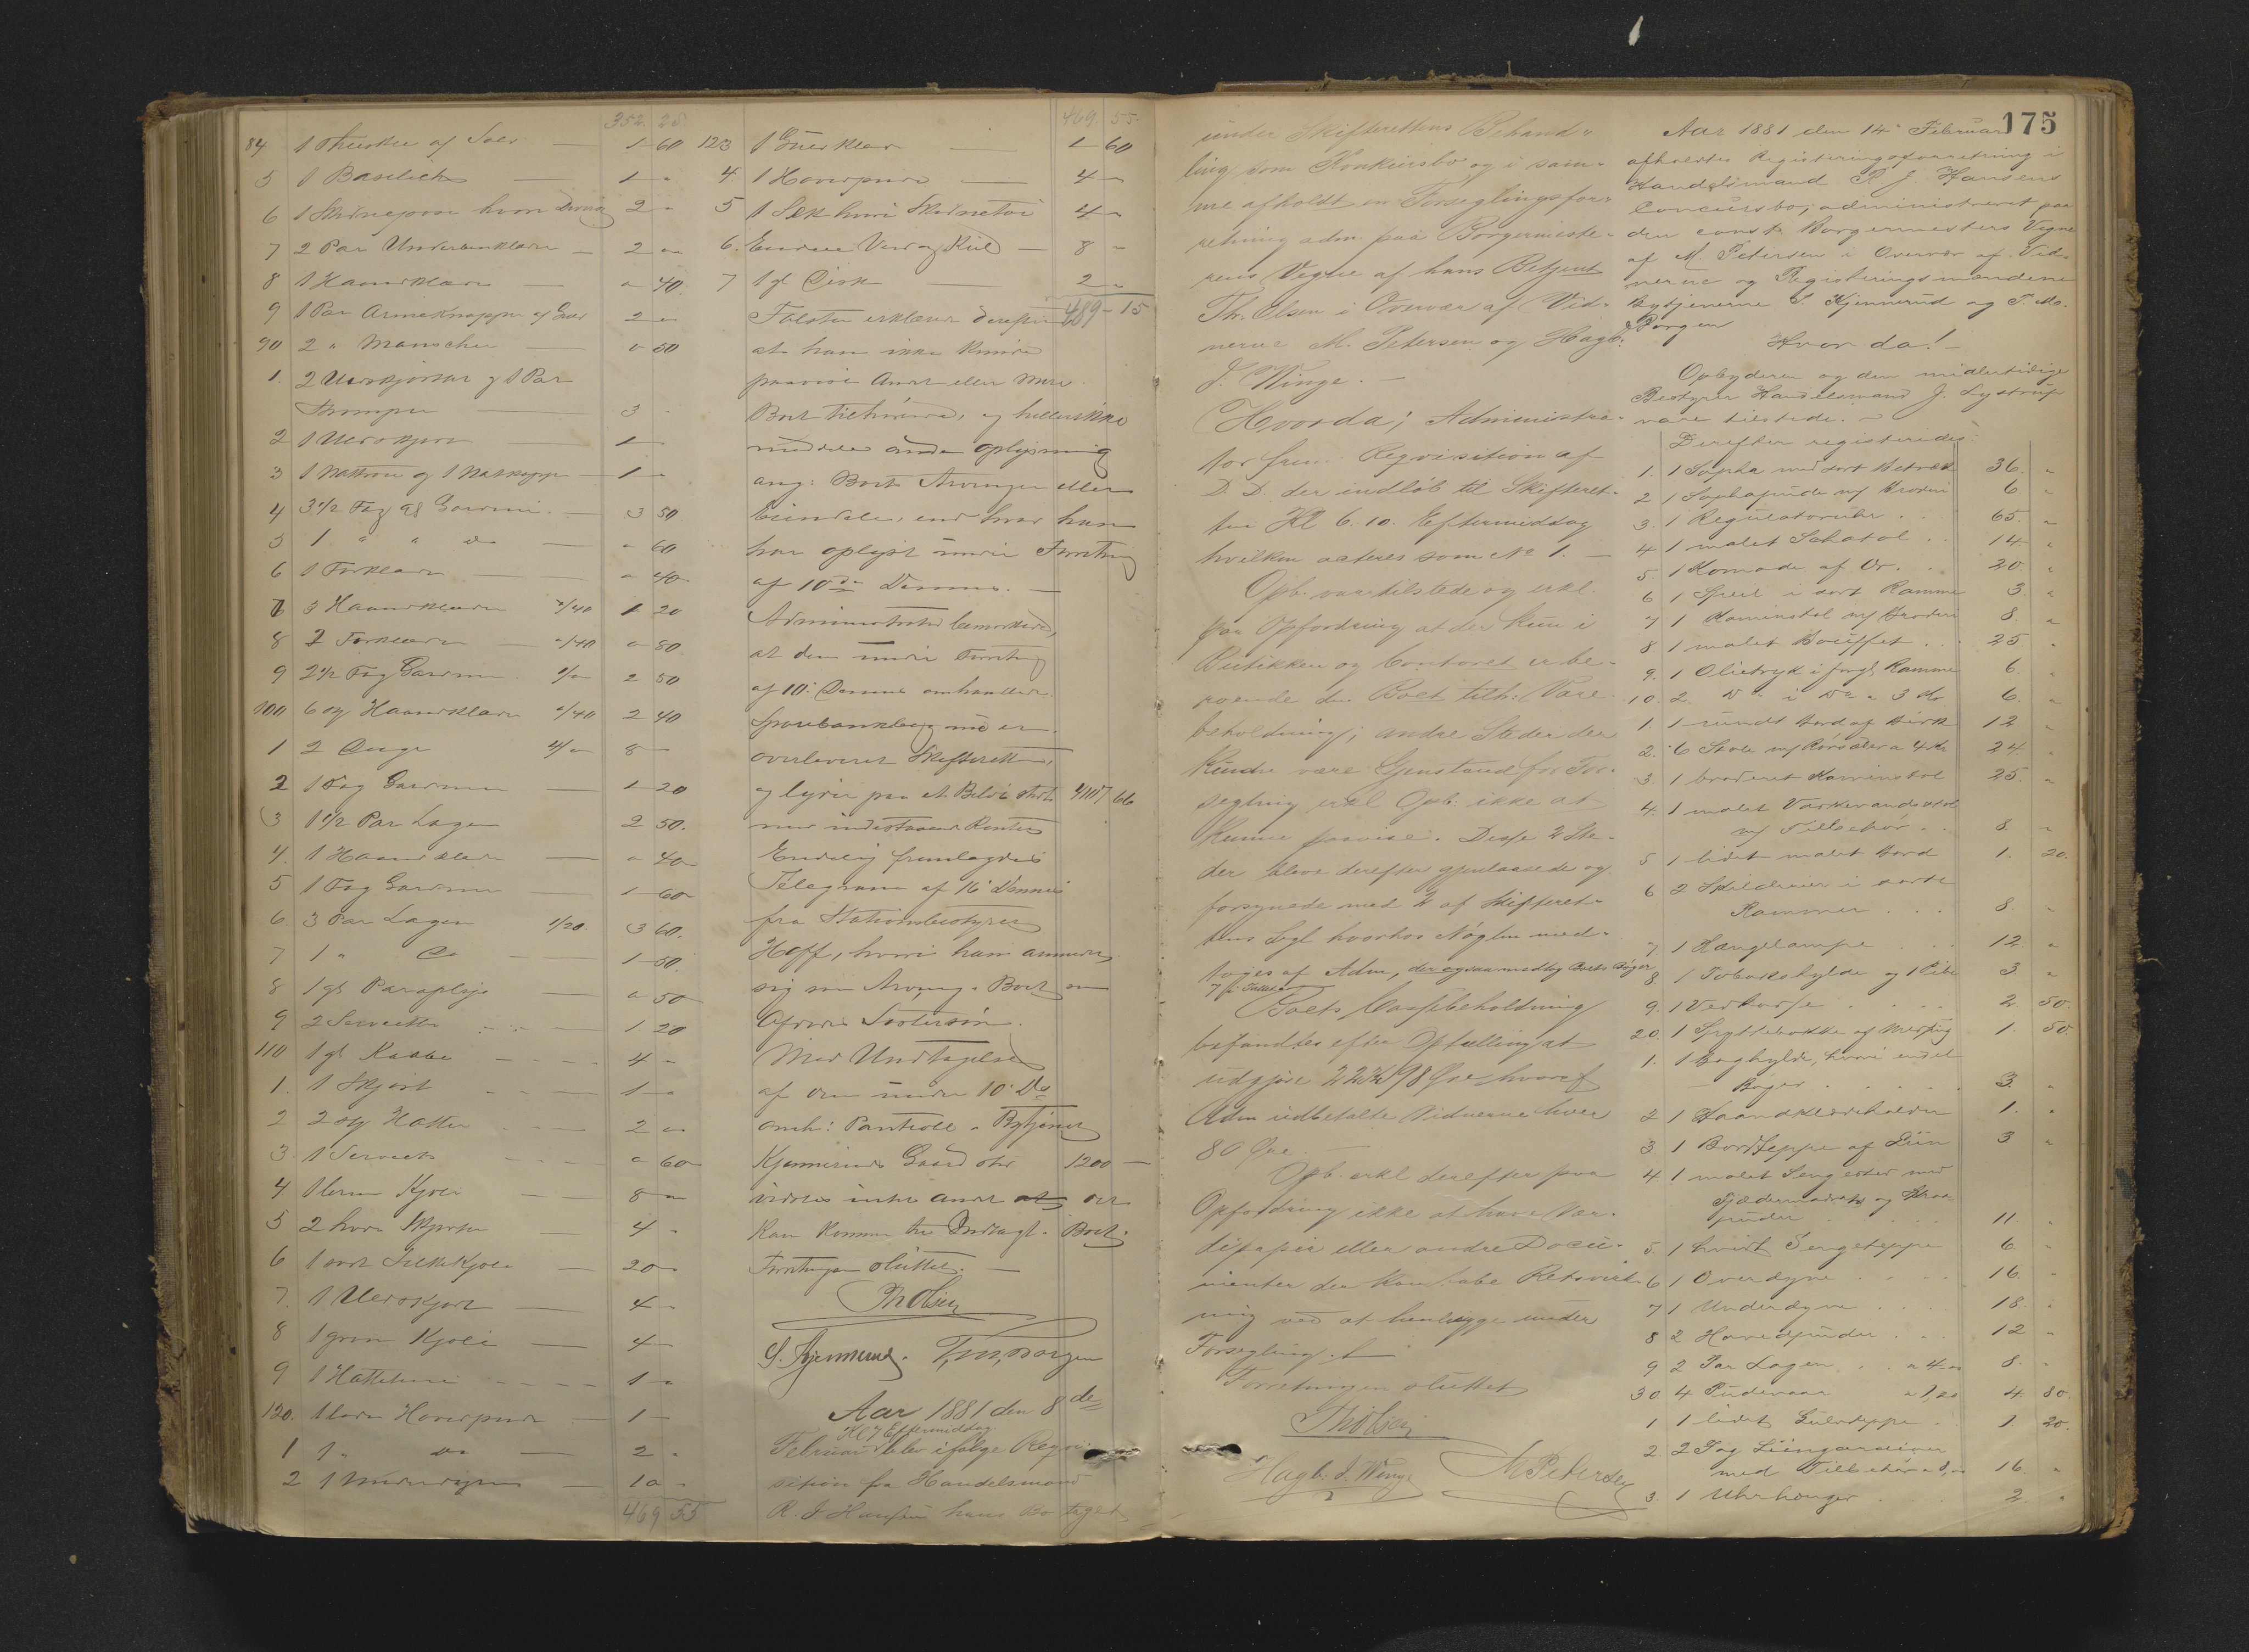 352. 25
84 1 Theeskee af Sølv — 1 60
5 1 — 1 "
6 1 hvori 2 "
7 2 Par Underbenklæder — 2 "
8 1 Haandklæde — " 40.
9 1 Par Armeknapper af 2 "
90 2 " Manschetter — " 50
1. 2 Uldskjorter og 1 Par
Strømper — 3 "
2 1 Uldskjort — 1 "
3 1 Nattrøie og 1 Natkappe — 1 "
4 3 1/2 Fag gl Gardiner — 3 50
5 1 " " do — " 60
6 1 Forklæde — " 40
7 3 Haandklæder "/40 1 20
8 2 Forklæder "/40 " 80
9 2 1/2 Fag Gardiner 1/" 2 50
100 6 og Haandklæder "/40 2 40
1 2 Duge 4/" 8 "
2 1 Fag Gardiner — 1 20
3 1 1/2 Par Lagen 2 50.
4. 1 Haandklæde — " 40
5 1 Fag Gardiner — 1 60
6. 3 Par Lagen 1/20. 3 60.
7 1 " Do — 1 50.
8 1 gl Paraplye " 50
9 2 Servietter 1 20
110 1 gl Kaabe 4 "
1. 1 Skjört 1 "
2 2 Hatte 2 "
3. 1 Serviet " 60
4 1 Kjole 8 "
5 2 hvide Skjorter 4 "
6 1 sort Silkekjole — 20 "
7. 1 Uldskjort — 4 "
8 1 grøn Kjole — 4 "
9 1 1 "
120. 1 Hovedpude — 1 "
1 1 " do — 2 "
2 1 Underdyne — 10 "
469 55
469. 55.
123 1 — 1 60
4 1 Hovedpude — 4 "
5 1 Sæk hvori Skidentöi 4 "
6. Endeel Ved og Kul — 8 "
7 1 gl Disk — 2 "
489 - 15
erklærede derefter
at han ikke kunde
paavise Andet eller Mere
Boet tilhörende, og heller ikke
meddele anden Oplysning
ang: Boets Arvinger eller
Eiendele, end hvad han
har oplyst under Forretning
af 10de Dennes. —
Administrator bemærkede,
at den under Forretning
af 10' Dennes omhandlede
Sparebankbog nu er
overleveret Skifteretten,
og lyder paa et Belöb stort 4117 66
med indestaaende Renter
Endelig fremlagdes
Telegram af 16' Dennes
fra Stationsbestyrer
Hoff, hvori han anmelder
sig som Arving i Boet som
Afdødes Søstersøn.
Med Undtagelse
af den under 10' Ds
omh: Pantobl. i Bytjener
Kjennerud's Gaard stor 1200 —
vides intet Andet at der
kan komme til Indtægt i Boet.
Forretningen sluttet. —
Th Olsen
S. Kjennerud. T. M. Borgen
Aar 1881 den 8de
Kl 7 Eftermiddag
Februar blev ifølge Reqvi-
sition fra Handelsmand
R. J. Hansen hans Bo taget
under Skifterettens Behand-
ling som Konkursbo og i sam-
me afholdt en Forseglingsfor-
retning adm. paa Borgermeste-
rens Vegne af hans Betjent
Th. Olsen i Overvær af Vid-
nerne M. Petersen og Hagb:
J. Winge. —
Hvorda; Administra-
tor frem. Reqvisition af
D. D. der indløb til Skifteret-
ten Kl 6.10. Eftermiddag
hvilken acteres som No 1. —
Opb. var tilstede og erkl.
paa Opfordring at der kun i
Butikken og Contoret er be-
roende den Boet tilh: Vare-
beholdning; andre Steder der
kunde være Gjenstand for For-
segling erkl Opb. ikke at
kunne paavise. Disse 2 Ste-
der bleve derefter gjenlaasede og
forsynede med 2 af Skifteret-
tens Segl hvorhos Nøglen med-
toges af Adm, der ogsaa medtog Boets Bøger
7 i Tallet
Boets Cassebeholdning
befandtes efter Optælling at
udgjøre 22 Kr 98 Øre hvoraf
Adm udbetalte Vidnerne hver
80 Øre. —
Opb. erkl derefter paa
Opfordring ikke at have Vær-
dipapir eller andre Docu-
menter der kan have Retsvirk-
ning ved at henligge under
Forsegling. —
Forretningen sluttet
Th Olsen
Hagb. J. Winge M Petersen
175
Aar 1881 den 14' Februar
afholdtes Registreringsforretning i
Handelsmand R J. Hansens
Concursbo, administreret paa
den const. Borgermesters Vegne
af M. Petersen i Overvær af Vid-
nerne og Registreringsmændene
Bytjenerne S. Kjennerud og T. M.
Borgen
Hvor da! —
Opbyderen og den midlertidige
Bestyrer Handelsmand J. Lystrup
vare tilstede. —
Derefter registreredes:
1. 1 Sopha med sort Betræk 36. "
2 1 Sophapude m/ Broderi 6 "
3. 1 Regulatoruhr 65. "
4 1 malet Schatol 14 "
5. 1 Komode af Or. 20. "
6 1 Speil i sort Ramme 3. "
7 1 Kaminstol m/ Broderi 8. "
8 1 malet Bouffet 25. "
9. 1 Olietryk i forgl. Ramme 6. "
10 2 Do i Do a 3 Kr 6. "
1. 1 rundt Bord af Birk 12 "
2. 6 Stole m/ Rørsæder a 4 Kr 24 "
3. 1 broderet Kaminstol 25. "
4. 1 malet Vaskevandsstol
m/ Tilbehør 8. "
5 1 lidet malet Bord 1. 20.
6 2 Skilderier i sorte
Rammer 8. "
7 1 Hængelampe 12 "
8 1 Tobakshylde og 1 Pibe 3 "
9. 1 Vedkasse 2. 50.
20. 1 Spyttebakke af Messing 1. 50.
1. 1 Boghylde, hvori endel
Bøger 3. "
2 1 Haandklædeholder 1. "
3 1 Bordteppe af Liin 3 "
4. 1 malet Sengested med
Fjædermadrats og
puder 11. "
5. 1 hvidt Sengeteppe 6 "
6 1 Overdyne 16. "
7 1 Underdyne 18. "
8 2 Hovedpuder 12 "
9 2 Par Lagen a 4 " 8. "
30 4 Pudevaar a 1,20 4 80.
1 1 lidet Gulvteppe 1. 20.
2. 2 Fag Liingardiner
med Tilbehør a 8, " 16. "
3. 1 Uhrhænger 2 "